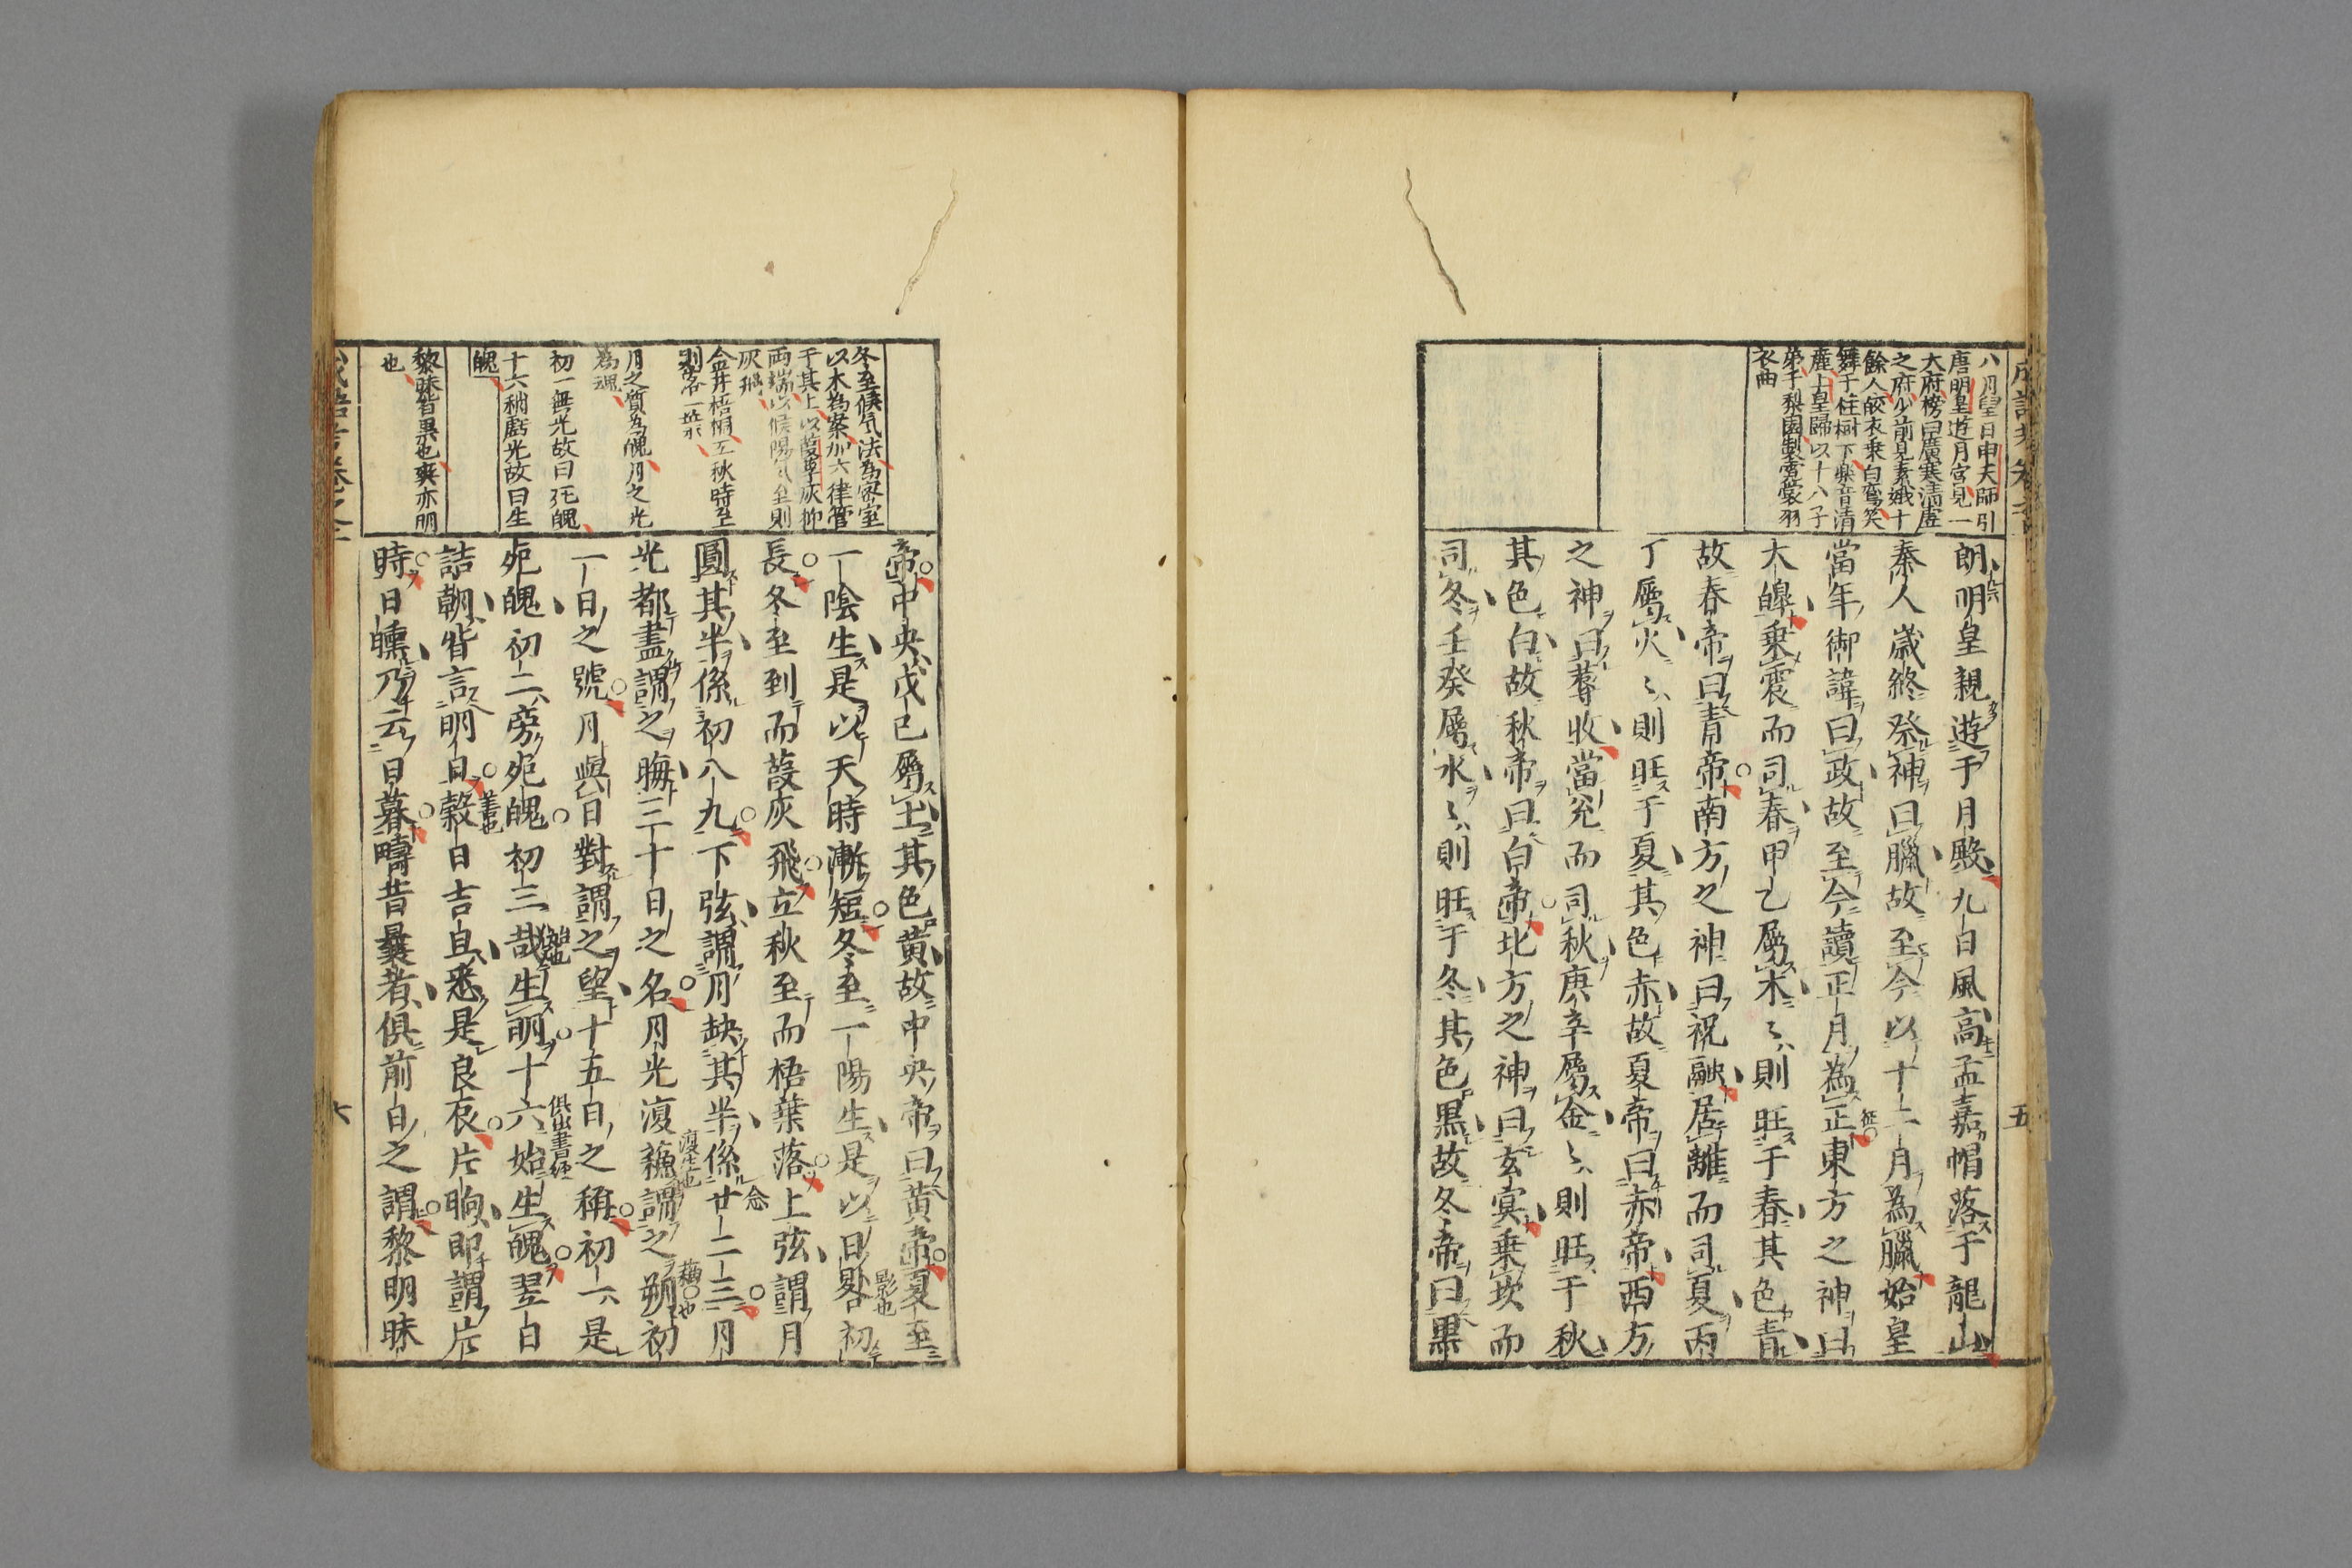 八月望日申天師引
唐明皇遊月宮見一
大府榜曰廣寒清虛
之府少前見素娥十
餘人皎衣乗白鸞笑
舞于桂樹下樂音清
麗上皇歸以十八子
弟于梨園製霓裳羽
衣曲
朗明皇親遊于月殿九日風高孟嘉帽落于龍山
秦人歲終祭神曰臘故至今以十二月為臘始皇
當年御諱曰政故至今讀正月為正東方之神曰
太皞乗震而司春甲乙屬木〻則旺于春其色青
故春帝曰青帝南方之神曰祝融居離而司夏丙
丁屬火〻則旺于夏其色赤故夏帝曰赤帝西方
之神曰蓐收當兊而司秋庚辛屬金〻則旺于秋
其色白故秋帝曰白帝北方之神曰玄冥乗坎而
司冬壬癸屬水〻則旺于冬其色黒故冬帝曰黒
五
冬至候気法為密室
以木為案加六律管
于其上以葭莩灰抑
両端以候陽気至則
灰飛
金井梧桐立秋時至
則落一葉
月之質為魄月之光
為魂
初一無光故曰死魄
十六稍虧光故曰生
魄
黎昧皆黒也爽亦明
也
帝中央戊己屬土其色黄故中央帝曰黄帝夏至
一陰生是以天時漸短冬至一陽生是以日晷初
影也
長冬至到而葭灰飛立秋至而梧葉落上弦謂月
圓其半係初八九下弦謂月缺其半係廿二三月
念
光都盡謂之晦三十日之名月光復蘓謂之朔初
一日之號月與日對謂之望十五日之稱初一是
死魄初二旁死魄初三哉生明十六始生魄翌日
俱出書経
詰朝皆言明日穀日吉旦悉是良辰片晌即謂片
善也
時日曛乃云日暮疇昔曩者俱前日之謂黎明昧
六